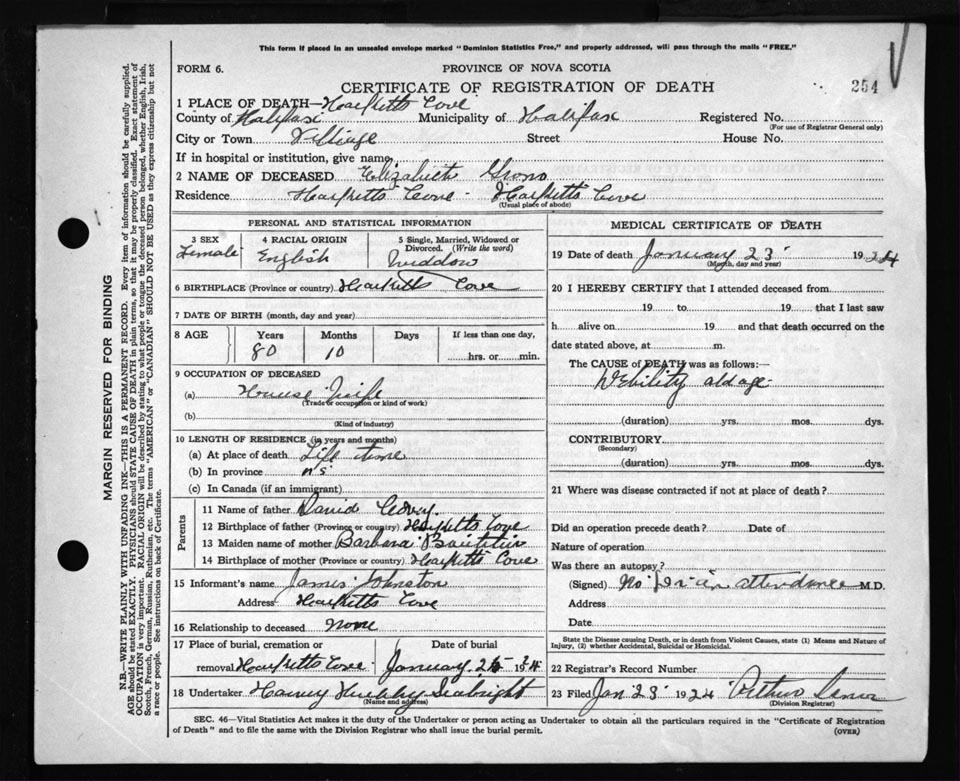 This form if placed in an unsealed envelope marked "Dominion Statistics Free," and properly addressed, will pass through the mails "FREE."
FORM 6.
PROVINCE OF NOVA SCOTIA
CERTIFICATE OF REGISTRATION OF DEATH
254
1 PLACE OF DEATH—Hacketts Cove
County of Halifax Municipality of Halifax Registered No.
(For use of Registrar General only)
City or Town Village Street House No.
If in hospital or institution, give name
2 NAME OF DECEASED Elizabeth
Residence Hacketts Cove - Hacketts Cove
(Usual place of abode)
PERSONAL AND STATISTICAL INFORMATION
3 SEX Female
4 RACIAL ORIGIN English
5 Single, Married, Widowed or Divorced. (Write the word)
Widdow
6 BIRTHPLACE (Province or country) Hacketts Cove
7 DATE OF BIRTH (month, day and year)
8 AGE Years Months Days If less than one day,
80 10 hrs. or min.
9 OCCUPATION OF DECEASED
(a) House Wife
(Trade or occupation or kind of work)
(b)
(Kind of industry)
10 LENGTH OF RESIDENCE (in years and months)
(a) At place of death Life time
(b) In province n s.
(c) In Canada (if an immigrant)
Parents
11 Name of father David
12 Birthplace of father (Province or country) Hacketts Cove
13 Maiden name of mother Barbara
14 Birthplace of mother (Province or country) Hacketts Cove
15 Informant's name James Johnston
Address Hacketts Cove
16 Relationship to deceased none
17 Place of burial, cremation or removal Hacketts Cove
Date of burial
January 19
18 Undertaker Harvey Hubley Seabright
(Name and address)
MEDICAL CERTIFICATE OF DEATH
19 Date of death January 23 1924
(Month, day and year)
20 I HEREBY CERTIFY that I attended deceased from
19 to 19 that I last saw
h alive on 19 and that death occurred on the
date stated above, at m.
The CAUSE of DEATH was as follows:—
Debility old age
(duration) yrs. mos. dys.
CONTRIBUTORY
(Secondary)
(duration) yrs. mos. dys.
21 Where was disease contracted if not at place of death?
Did an operation precede death? Date of
Nature of operation
Was there an autopsy?
(Signed) No Dr in attendance M.D.
Address
Date
State the Disease causing Death, or in death from Violent Causes, state (1) Means and Nature of Injury, (2) whether Accidental, Suicidal or Homicidal.
22 Registrar's Record Number
23 Filed Jan 23 1924 Arthur
(Division Registrar)
SEC. 46—Vital Statistics Act makes it the duty of the Undertaker or person acting as Undertaker to obtain all the particulars required in the "Certificate of Registration
of Death" and to file the same with the Division Registrar who shall issue the burial permit.
(OVER)
MARGIN RESERVED FOR BINDING
N.B.—WRITE PLAINLY WITH UNFADING INK—THIS IS A PERMANENT RECORD. Every item of information should be carefully supplied.
AGE should be stated EXACTLY. PHYSICIANS should STATE CAUSE OF DEATH in plain terms, so that it may be properly classified. Exact statement of
OCCUPATION is very important. RACIAL ORIGIN will be described by stating to what people or tongue the deceased person belonged, whether English, Irish,
Scotch, French, German, Russian, Ruthenian, etc. The terms "AMERICAN" or "CANADIAN" SHOULD NOT BE USED as they express citizenship but not
a race or people. See instructions on back of Certificate.